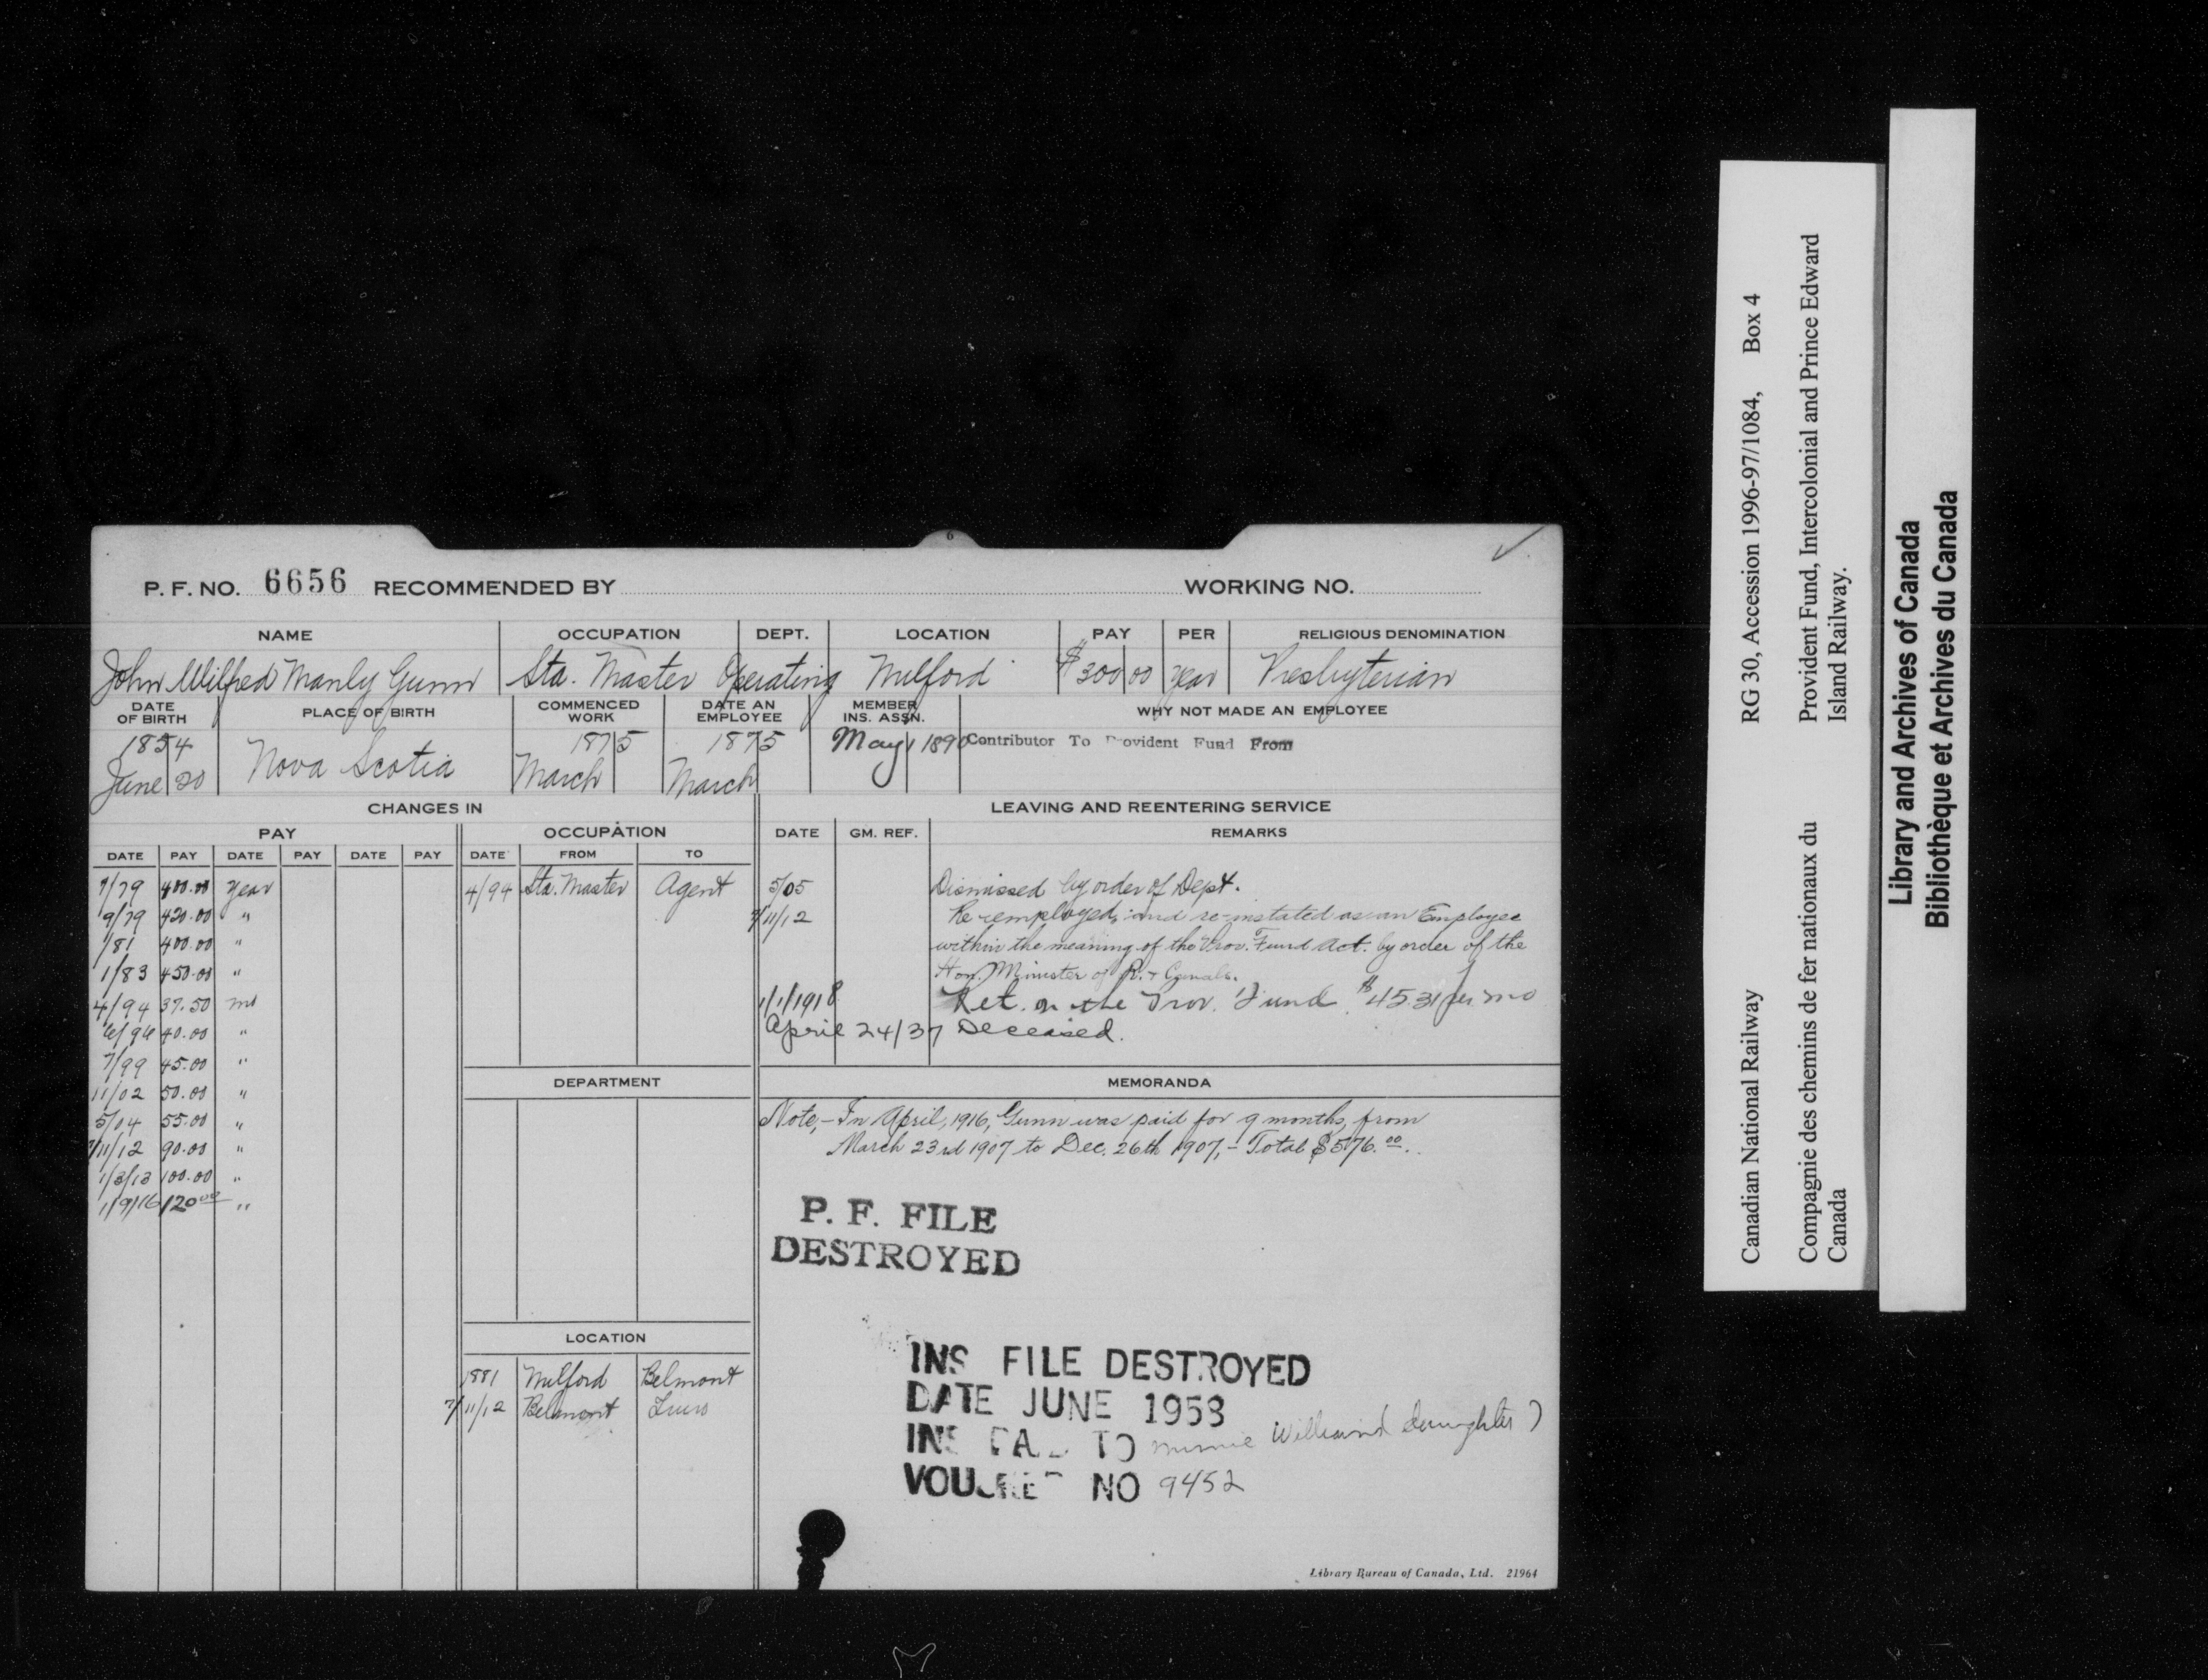 6
P. F. NO. 6656 RECOMMENDED BY WORKING NO.
NAME OCCUPATION DEPT. LOCATION PAY PER RELIGIOUS DENOMINATION
John Wilfred Manly Gunn Sta. Master Operating Milford $300 00 year Presbyterian
DATE OF BIRTH PLACE OF BIRTH COMMENCED WORK DATE AN EMPLOYEE MEMBER INS. ASSN. WHY NOT MADE AN EMPLOYEE
1854 Nova Scotia 1875 1875 May 1 1890 Contributor To Provident Fund From
June 20 March March
CHANGES IN LEAVING AND REENTERING SERVICE
PAY OCCUPATION DATE GM. REF. REMARKS
DATE PAY DATE PAY DATE PAY DATE FROM TO
7/79 400.00 year 4/94 Sta. Master Agent 5/05 Dismissed by order of Dept.
9/79 420.00 " 7/11/12 Re-employed, and re-instated as an Employee
1/81 400.00 " within the meaning of the Prov. Fund Act. by order of the
1/83 450.00 " Hon. Minister of R. & Canals.
4/94 37.50 mo 1/1/1918 Ret. on the Prov. Fund $45.31 per mo
6/96 40.00 " April 24/37 Deceased.
7/99 45.00 "
11/02 50.00 "
5/04 55.00 "
7/11/12 90.00 "
1/3/13 100.00 "
1/9/16 120.00 "
DEPARTMENT MEMORANDA
Note,- In April, 1916, Gunn was paid for 9 months, from
March 23rd 1907 to Dec. 26th 1907,- Total $576.00.
P. F. FILE
DESTROYED
LOCATION
1881 Milford Belmont
7/11/12 Belmont Truro
INS FILE DESTROYED
DATE JUNE 1958
INS PAID TO Minnie daughter)
VOUCHER NO 9452
Library Bureau of Canada, Ltd. 21964
Canadian National Railway RG 30, Accession 1996-97/1084, Box 4
Compagnie des chemins de fer nationaux du Canada Provident Fund, Intercolonial and Prince Edward Island Railway.
Library and Archives of Canada
Bibliothèque et Archives du Canada